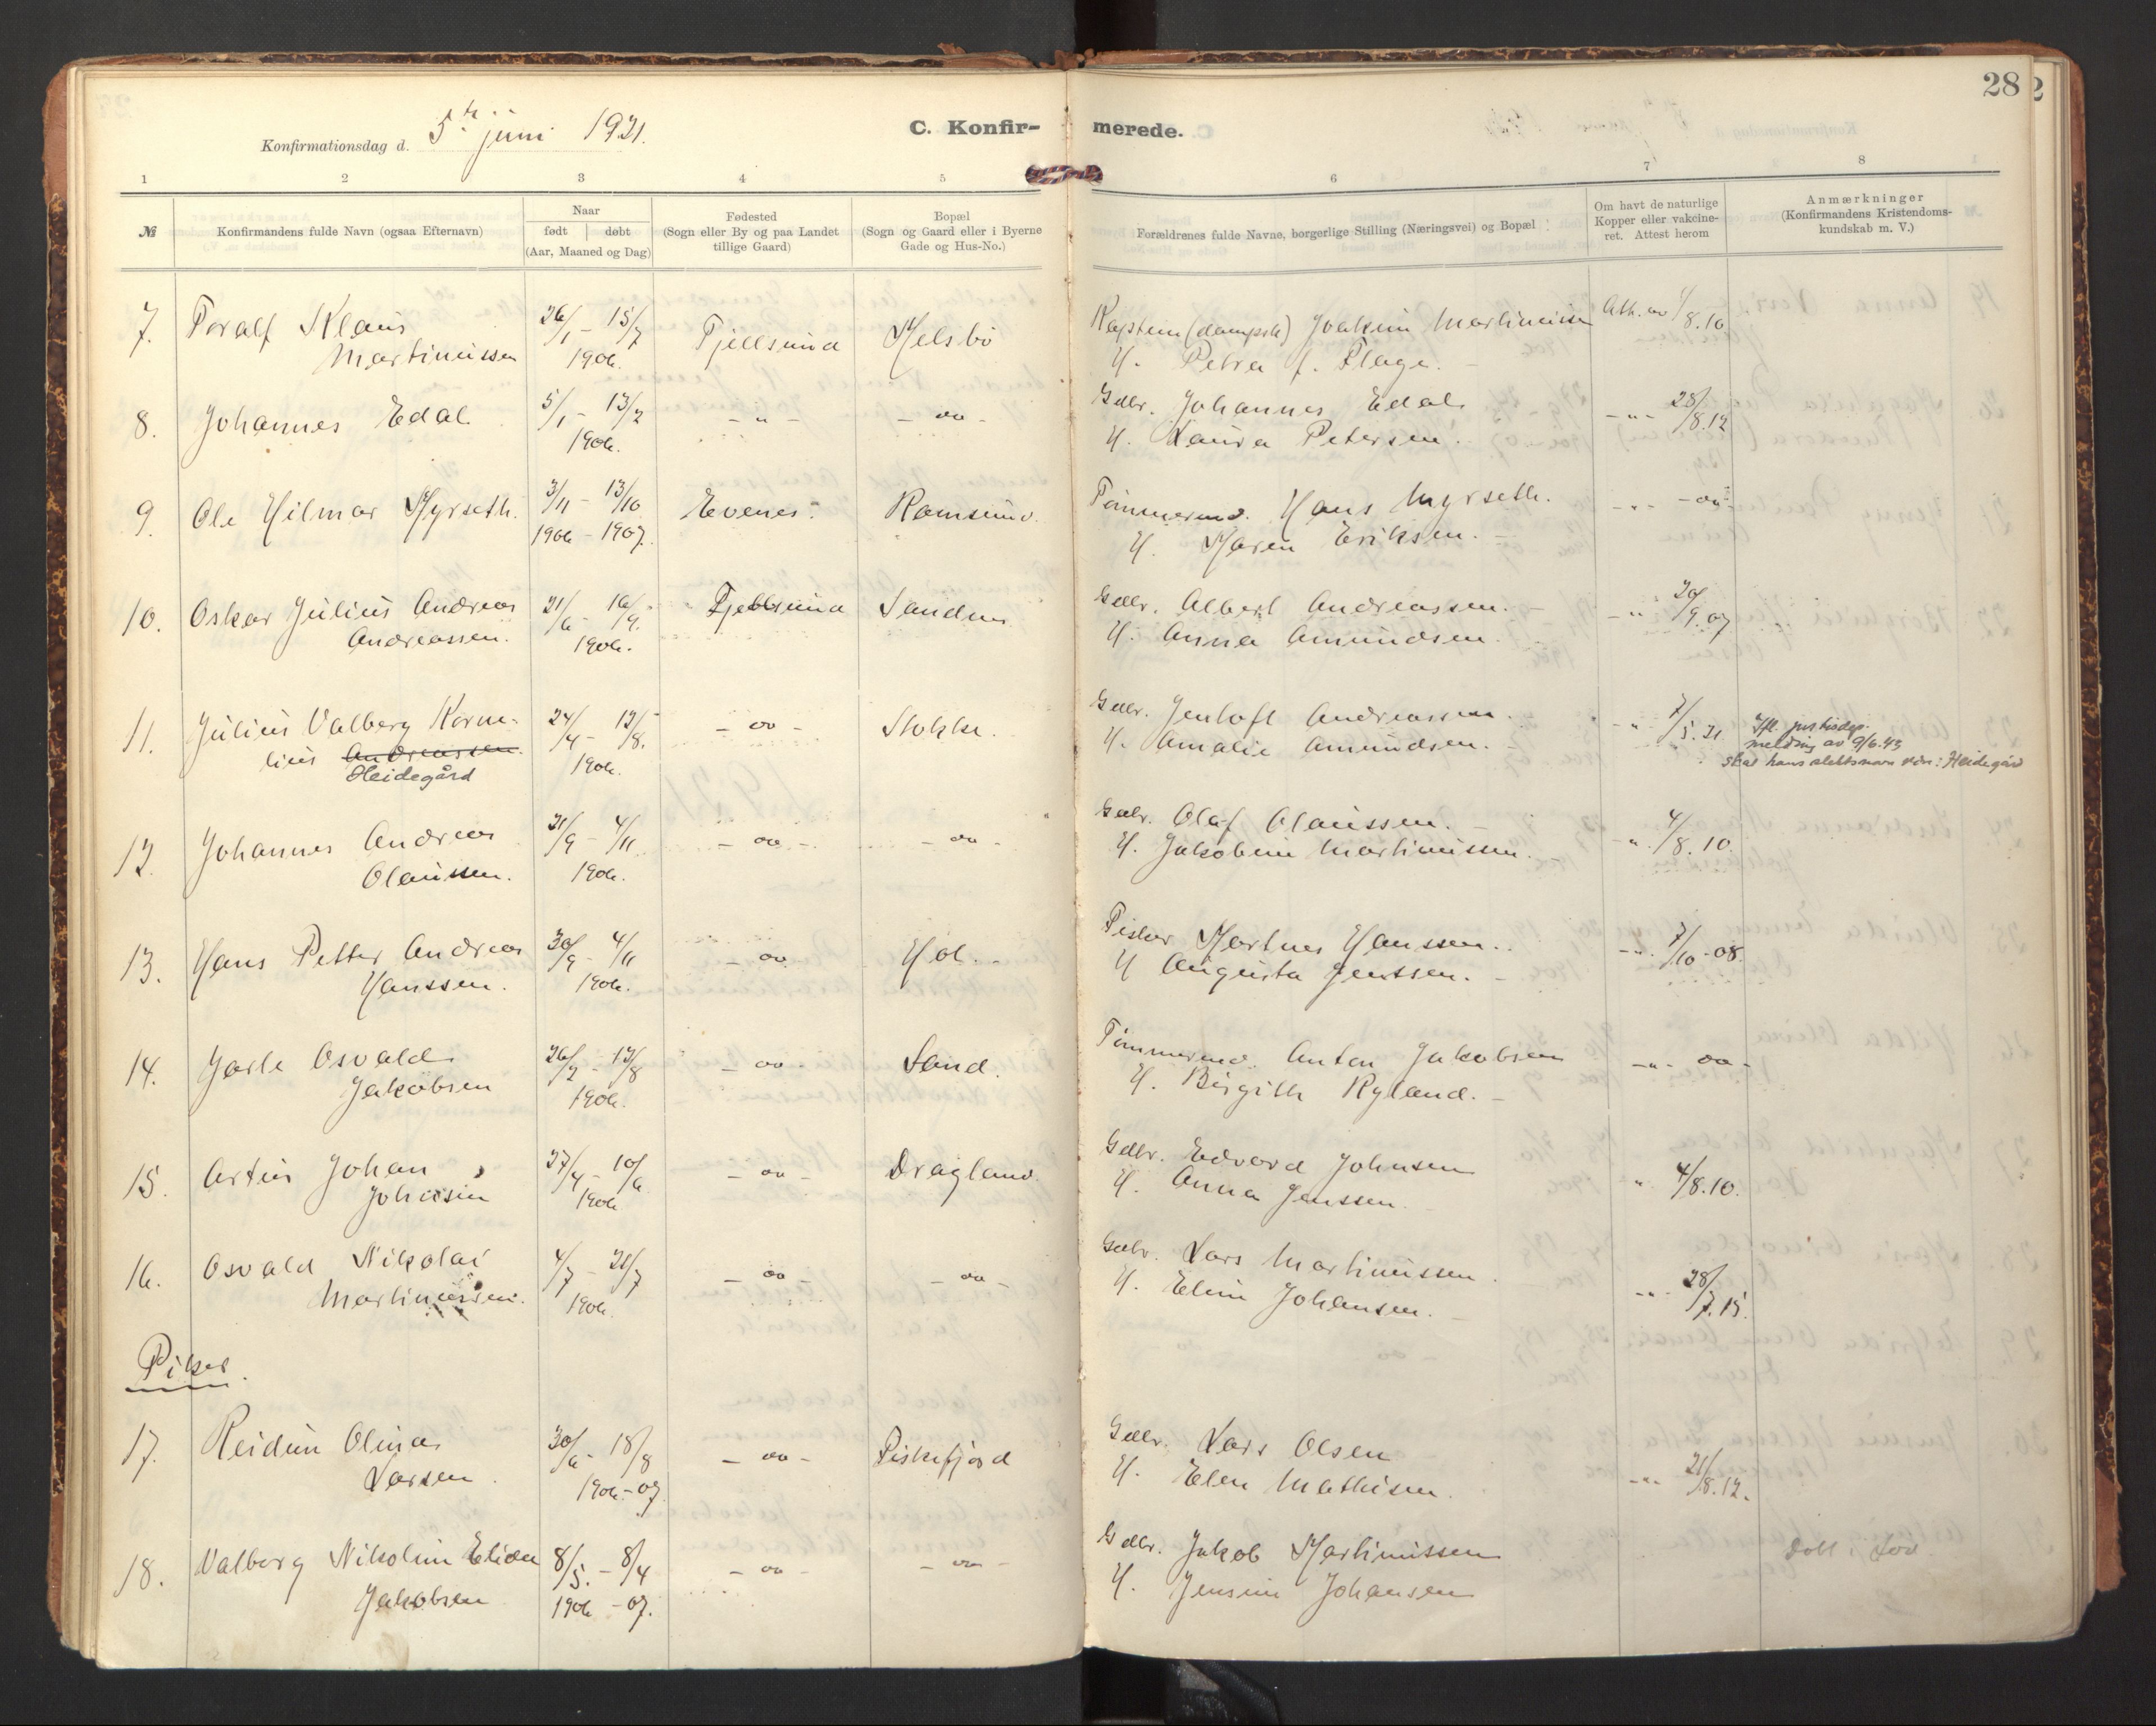 28
Konfirmationsdag d. 5te juni 1921.
C. Konfir-
merede.
1 2 3 4 5 6 7 8
№
Konfirmandens fulde Navn (ogsaa Efternavn)
Naar
født døbt
(Aar, Maaned og Dag)
Fødested
(Sogn eller By og paa Landet
tillige Gaard)
Bopæl
(Sogn og Gaard eller i Byerne
Gade og Hus-No.)
Forældrenes fulde Navne, borgerlige Stilling (Næringsvei) og Bopæl
Om havt de naturlige
Kopper eller vakcine-
ret. Attest herom
Anmærkninger
(Konfirmandens Kristendoms-
kundskab m. V.)
7. Toralf Klaus 26/1 - 15/7 Fjellsund Melsbö Kaptein (dampsk) Joakim Martinussen Att. av 4/8.10
Martinussen 1906. H. Petra f. Plage.
8. Johannes Edal 5/1 - 13/2 - " - - oo - Gdbr. Johannes Edal - " - 28/8.12
1906. H. Laura Petersen.
9. Ole Hilmar Myrseth. 3/11 - 13/10 Evenes. Ramsund. Tømmermd. Hans Myrseth. - " - - oo -
1906 - 1907. H. Maren Eriksen. -
10. Oskar Julius Andreas 21/6 - 16/9. Fjellsund Sandnes Gdbr. Albert Andreassen. - - " 20/9.07
Andreassen. 1906. H. Anna Amundsen.
11. Julius Valberg Korne- 24/4 - 12/8. - oo - Stokke. Gdbr. Jentoft Andreassen. - " 7/5.21. Ifl. justisdep.
lius Andreassen. 1906. H. Amalie Amundsen. - melding av 9/6.43
Heidegård skal hans slektsnavn være: Heidegård
12. Johannes Andreas 21/9 - 4/11 - oo - - oo - Gdbr. Olaf Olaussen. - - " 4/8.10.
Olaussen. 1906. H. Jakobine Martinussen.
13. Hans Petter Andreas 30/9 - 4/11 - oo Hol. - Fisker Martnes Hanssen. - " 7/10-08.
Hanssen. 1906. H Augusta Jenssen. -
14. Jarle Osvald 26/2 - 12/8 - oo - Sand. Tømmermd. Anton Jakobsen - " - oo -
Jakobsen 1906. H. Birgith Ryland. -
15. Artur Johan 27/4 - 10/6 - oo - Dragland. Gdbr. Edvard Johnsen " 4/8.10.
Johnsen 1906 H. Anna Jenssen.
16. Osvald Nikolai 4/7 - 21/7 - oo - - oo - Gdbr. Lars Martinussen - " - 28/7.15.
Martinussen. 1906. H. Eline Johansen. -
Piker.
17. Reidun Olina 30/6 - 18/8 - oo - Fiskefjord Gdbr. Lars Olsen - " - 21/8.12.
Larsen. 1906.-07. H. Elen Mathisen.
18. Valborg Nikoline Elida 8/5. - 8/4 - oo - - oo - Gdbr. Jakob Martinussen
Jakobsen 1906 - 07. H. Jensine Johansen